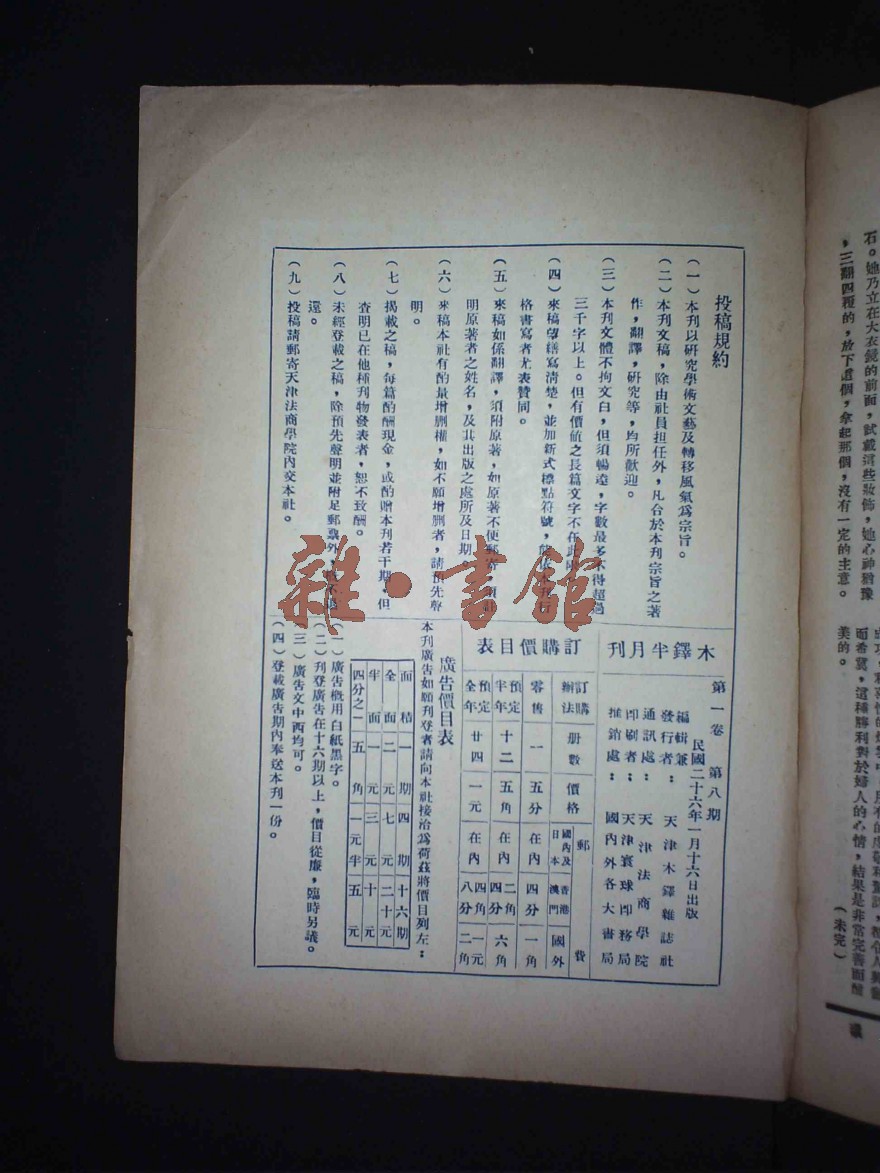 投稿規約
（一）本刊以研究學術文藝及轉移風氣爲宗旨。
（二）本刊文稿，除由社員担任外，凡合於本刊宗旨之著
作，翻譯，研究等，均所歡迎。
（三）本刊文體不拘文白，但須暢達，字數最多不得超過
三千字以上。但有價值之長篇文字不在此限。
（四）來稿望繕寫清楚，並加新式標點符號，
格書寫者尤表贊同。
（五）來稿如係翻譯，須附原著，如原著不便郵寄，須註
明原著者之姓名，及其出版之處所及日期。
（六）來稿本社有酌量增删權，如不願增删者，請預先聲
明。
（七）揭載之稿，每篇酌酬現金，或酌贈本刊若干期，但
查明已在他種刊物發表者，恕不致酬。
（八）未經登載之稿，除預先聲明並附足郵票外，
還。
（九）投稿請郵寄天津法商學院內交本社。
木鐸半月刊
第一卷 第八期
民國二十六年一月十六日出版
編輯兼
發行者：天津木鐸雜誌社
通訊處：天津法商學院
印刷者：天津寰球印務局
推銷處：國內外各大書局
訂購價目表
訂購辦法 册數 價格 郵費
國內及日本 香港澳門 國外
零售 一 五分 在內 四分 一角
預定半年 十二 五角 在內 二角四分 六角
預定全年 廿四 一元 在內 四角八分 一元二角
廣告價目表
本刊廣告如願刊登者請向本社接洽爲荷茲將價目列左：
面積 一期 四期 十六期
全面 二元 七元 二十元
半面 一元 三元 十元
四分之一 五角 一元半 五元
（一）廣告概用白紙黑字。
（二）刊登廣告在十六期以上，價目從廉，臨時另議。
（三）廣告文中西均可。
（四）登載廣告期內奉送本刊一份。
雜·書館
石。她乃立在大衣鏡的前面，試戴這些妝飾，她心神猶豫
，三翻四覆的，放下這個，拿起那個，沒有一定的主意。
而希冀，這種勝利對於婦人的心情，結果是非常完善而醋
美的。
（未完）